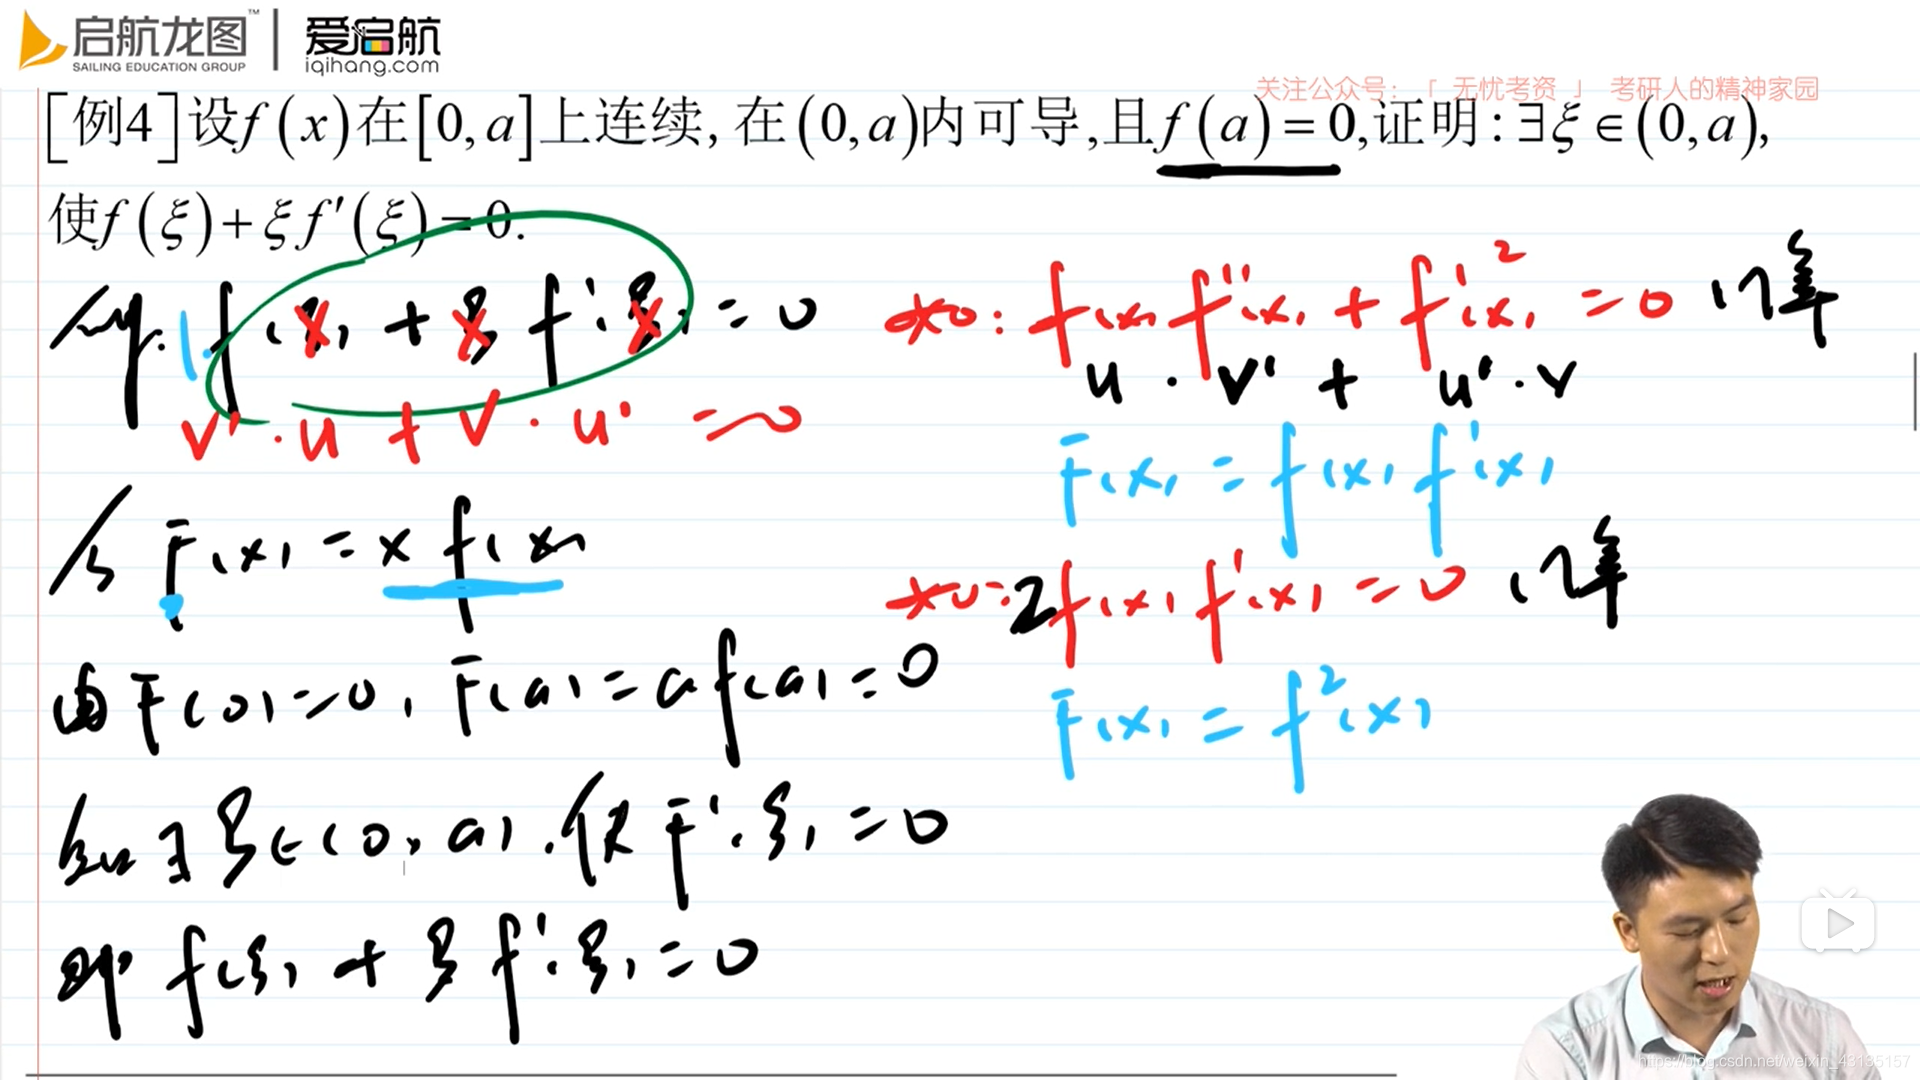 启航龙图™ 爱启航
SAILING EDUCATION GROUP iqihang.com
关注公众号：「 无忧考资 」 考研人的精神家园
[例4]设f(x)在[0,a]上连续,在(0,a)内可导,且f(a)=0,证明:∃ξ∈(0,a),
使f(ξ)+ξf′(ξ)=0.
分析: 1·f(x)+xf′(x)=0
v′·u+v·u′=0
令 F(x)=xf(x)
由F(0)=0, F(a)=af(a)=0
知∃ξ∈(0,a).使F′(ξ)=0
即 f(ξ)+ξf′(ξ)=0
如: f(x)f″(x)+f′²(x)=0
u·v′+u′·v
F(x)=f(x)f′(x)
2f(x)f′(x)=0
F(x)=f²(x)
https://blog.csdn.net/weixin_43135157